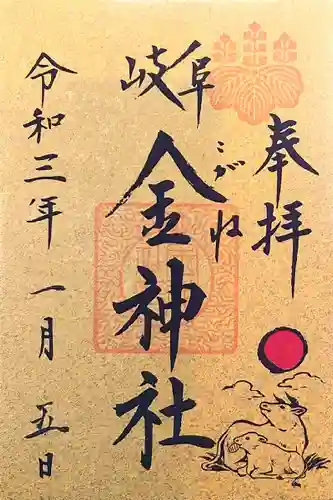 奉拝
岐阜
金神社
こがね
令和三年 一月 五日